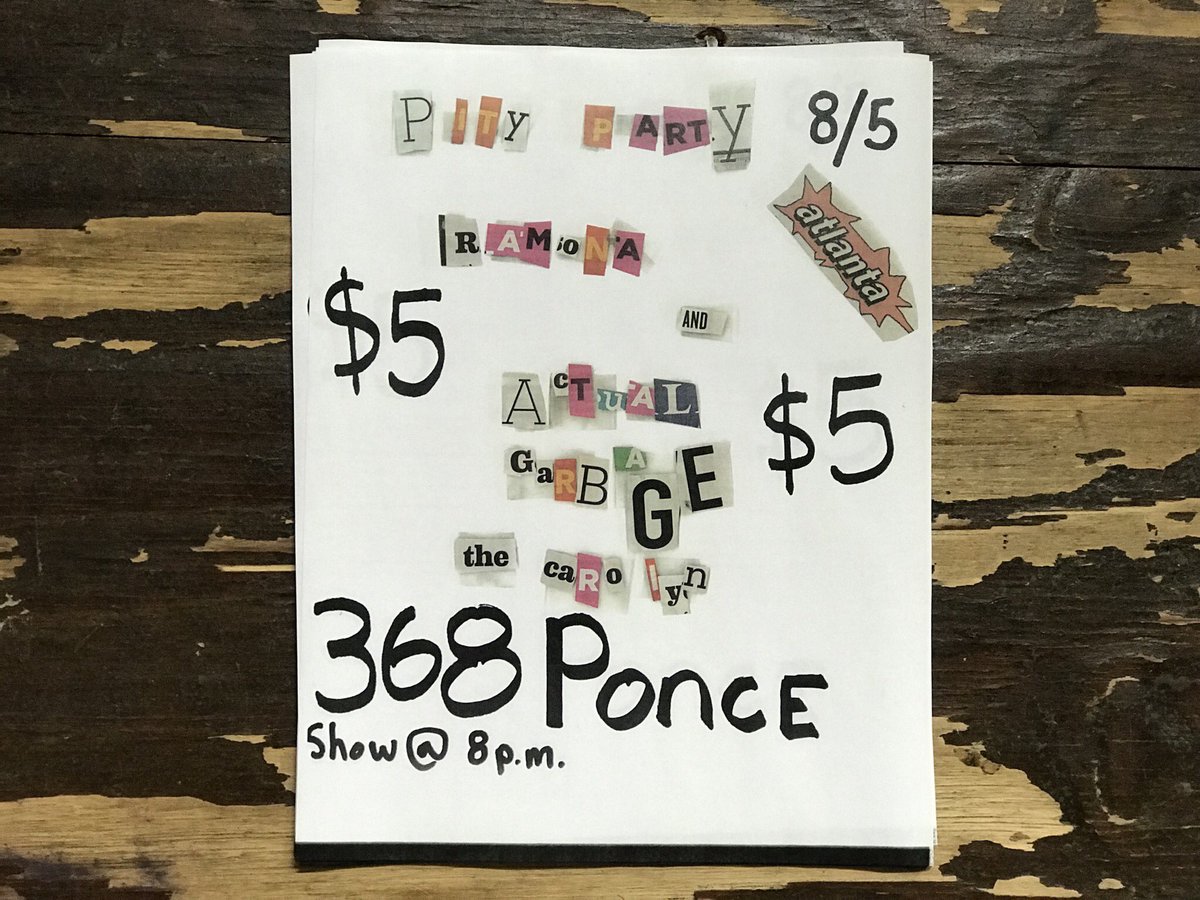 Pity Party 8/5
atlanta
RAMONA
$5
AND
ACTUAL
$5
GarBAGE
the caRolyn
368 Ponce
Show @ 8 p.m.